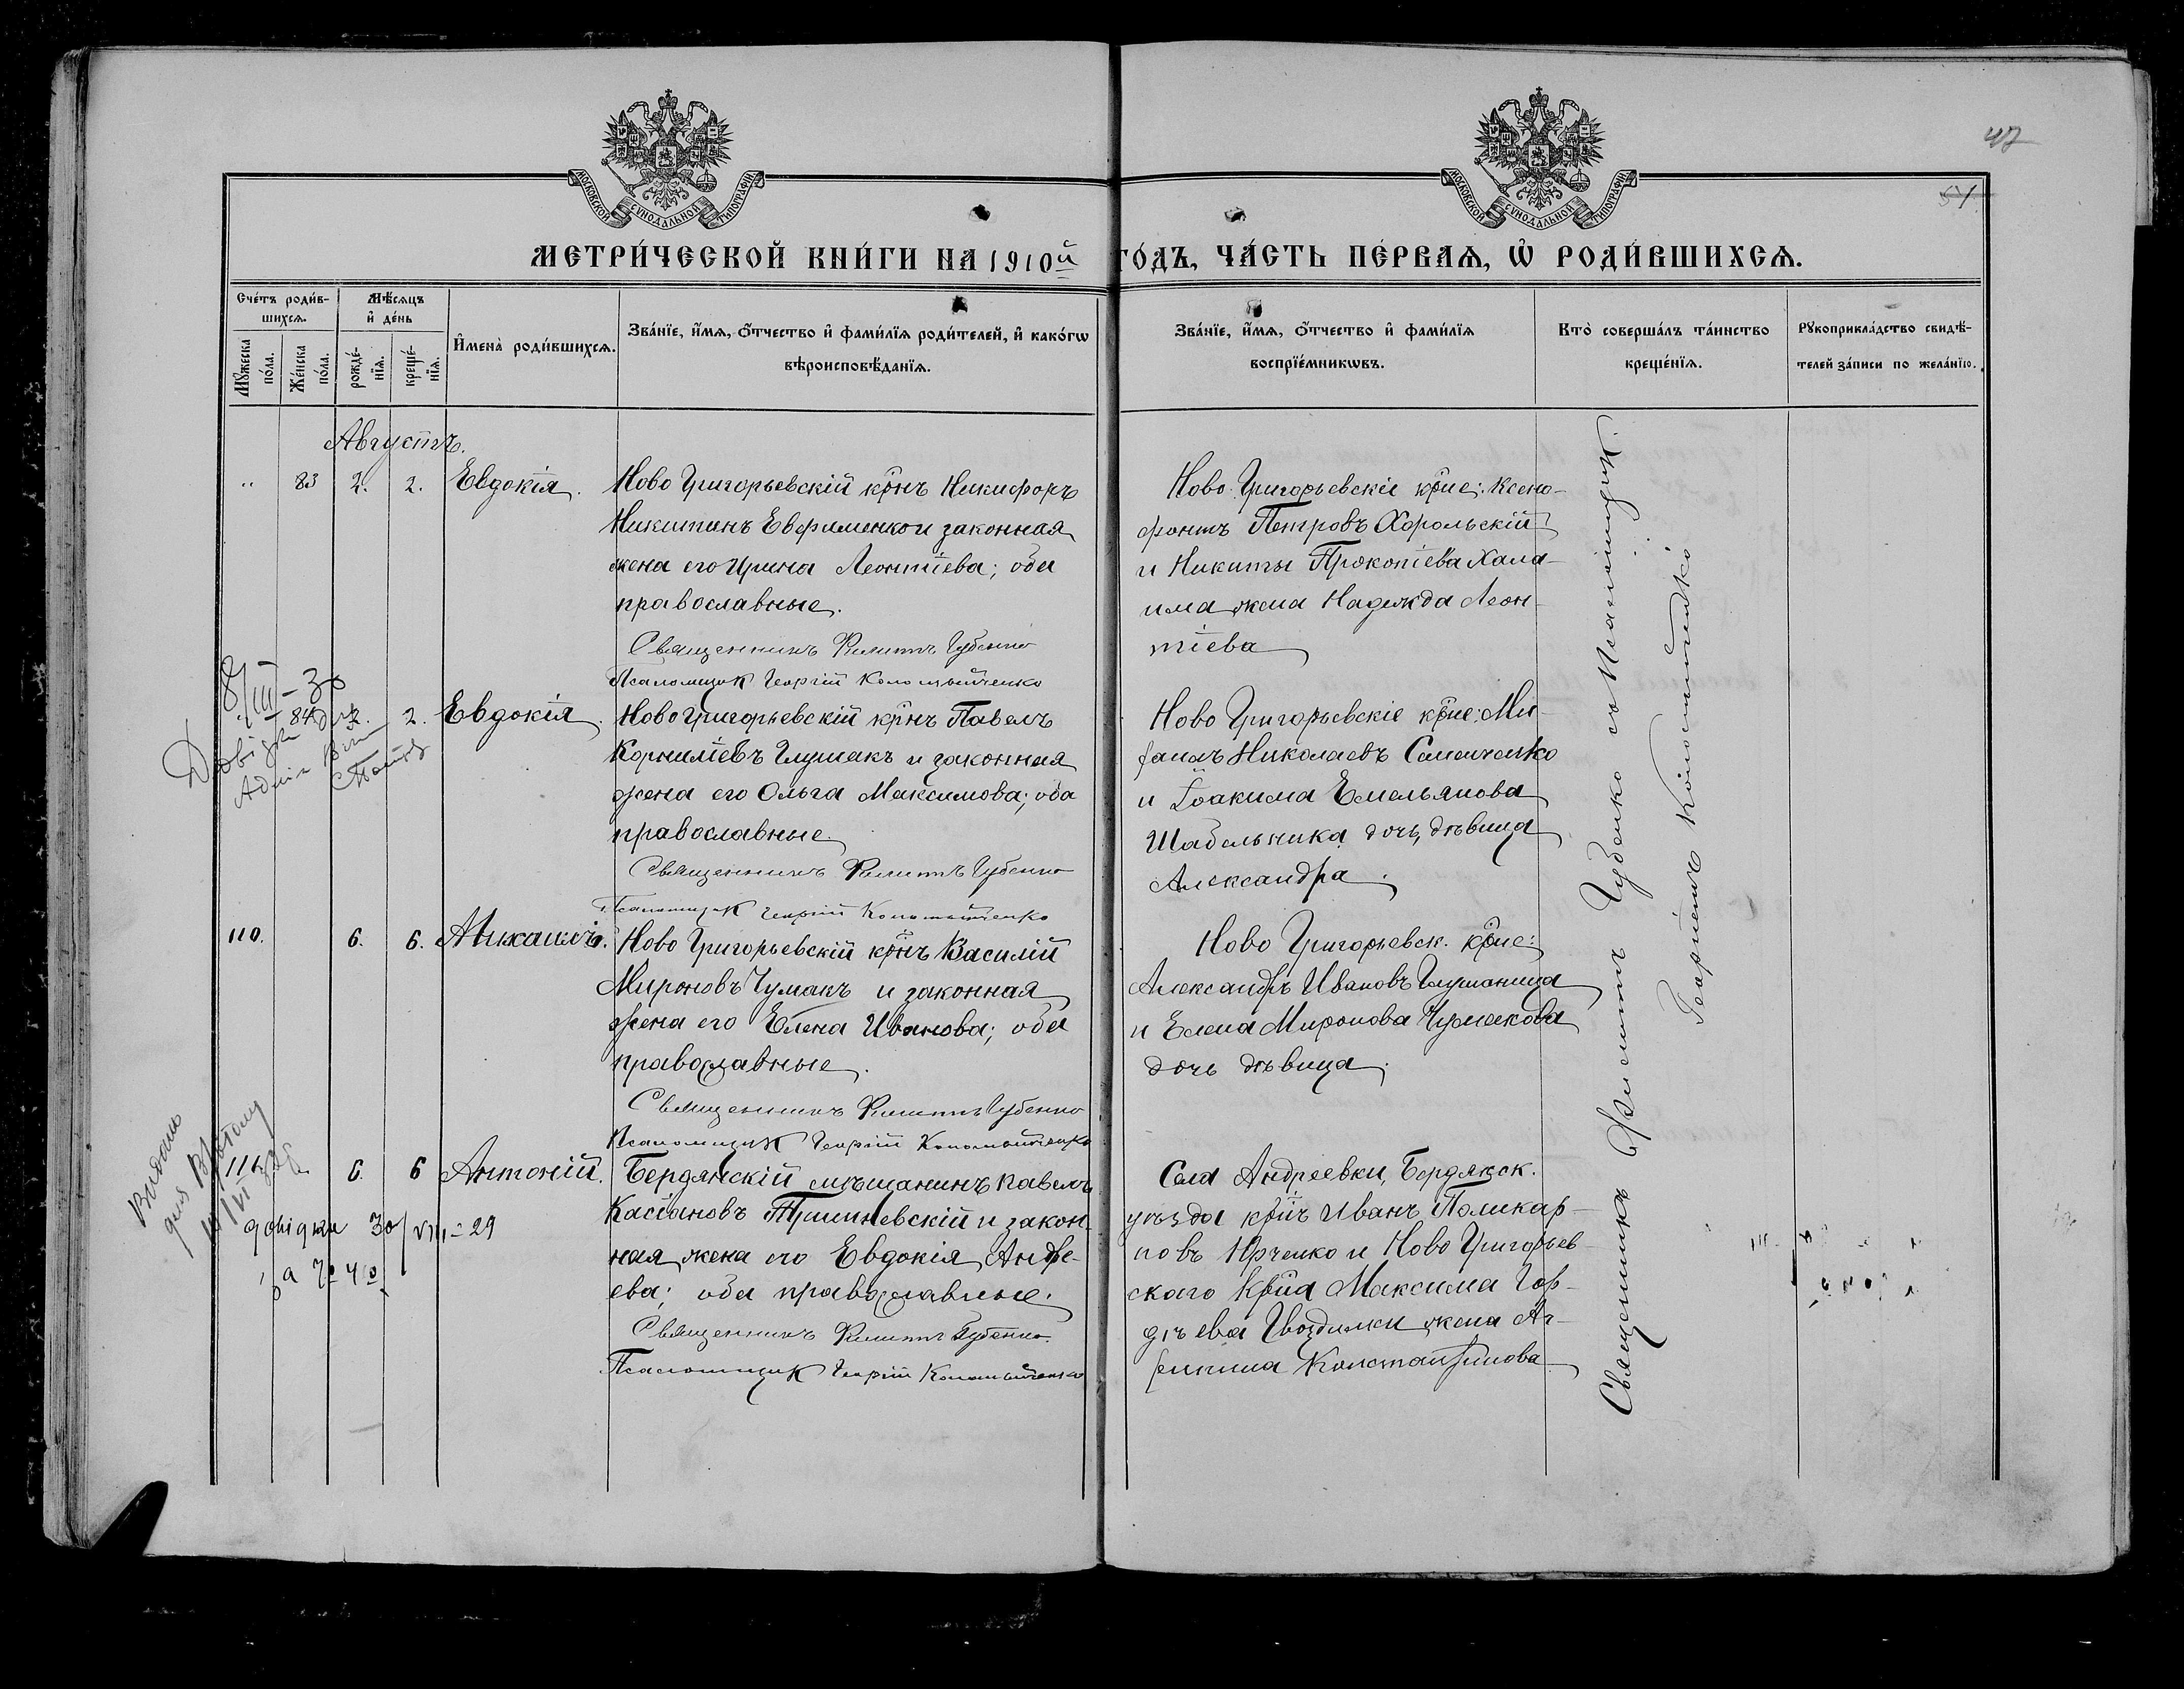 47
54
МОСКОВСКОЙ СѴНОДАЛЬНОЙ ТИПОГРАФІИ
МОСКОВСКОЙ СѴНОДАЛЬНОЙ ТИПОГРАФІИ
МЕТРИ́ЧЕСКОЙ КНИ́ГИ НА 1910й ГО́ДЪ, ЧА́СТЬ ПЕ́РВАѦ, Ѡ҆ РОДИ́ВШИХСѦ.
Сче́тъ роди́в-
шихсѧ.
Мꙋ́жеска по́ла.
Же́нска по́ла.
Мѣ́сѧцъ
и҆ де́нь
рожде́-
нїѧ.
креще́-
нїѧ.
И҆мена̀ роди́вшихсѧ.
Зва́нїе, и҆́мѧ, ѻ҆́тчество и҆ фами́лїѧ роди́телей, и҆ како́гѡ
вѣроисповѣ́данїѧ.
Зва́нїе, и҆́мѧ, ѻ҆́тчество и҆ фами́лїѧ
воспрїе́мникѡвъ.
Кто̀ соверша́лъ та́инство
креще́нїѧ.
Рꙋкоприкла́дство свидѣ́-
телей за́писи по жела́нїю.
Августъ.
„ 83 2. 2. Евдокія.
Ново Григорьевскій крнъ Никифоръ
Никитинъ Ефрименко и законная
жена его Ирина Леонтіева; оба
православные.
Священникъ Филиппъ Губенко
Псаломщик Георгій Коломыйченко
Ново Григорьевскіе крне: Ксено-
фонтъ Петровъ Хорольскій
и Никиты Прокопіева Хала-
има жена Надежда Леон-
тіева
8/III-30
84 2. 2. Евдокія.
Ново Григорьевскій крнъ Павелъ
Корниліевъ Глушакъ и законная
жена его Ольга Максимова; оба
православные.
Священникъ Филиппъ Губенко
Псаломщик Георгій Коломыйченко
Ново Григорьевскіе крне: Ми-
хаилъ Николаевъ Семенченко
и Іоакима Емельянова
Шабельника дочь, дѣвица
Александра.
110. 6. 6. Михаилъ.
Ново Григорьевскій крнъ Василій
Мироновъ Чумакъ и законная
жена его Елена Иванова; оба
православные.
Священникъ Филиппъ Губенко
Псаломщик Георгій Коломыйченко
Ново Григорьевск. крне:
Александръ Ивановъ Глушаница
и Елена Миронова Чумакова
дочь дѣвица.
111. 6. 6 Антоній.
Бердянскій мѣщанинъ Павелъ
Касіановъ и закон-
ная жена его Евдокія Андре-
ева; оба православные.
Священникъ Филиппъ Губенко.
Псаломщик Георгій Коломыйченко
Села Андреевки, Бердянск.
уѣзда крнъ Иванъ Поликар-
повъ Юрченко и Ново Григорьев-
скаго крна Максима Гор-
дѣева жена Аг-
рипина Константинова.
довідка 30/VIII-29
за № 40
Священникъ Филиппъ Губенко съ Псаломщик.
Георгіемъ Коломыйченко